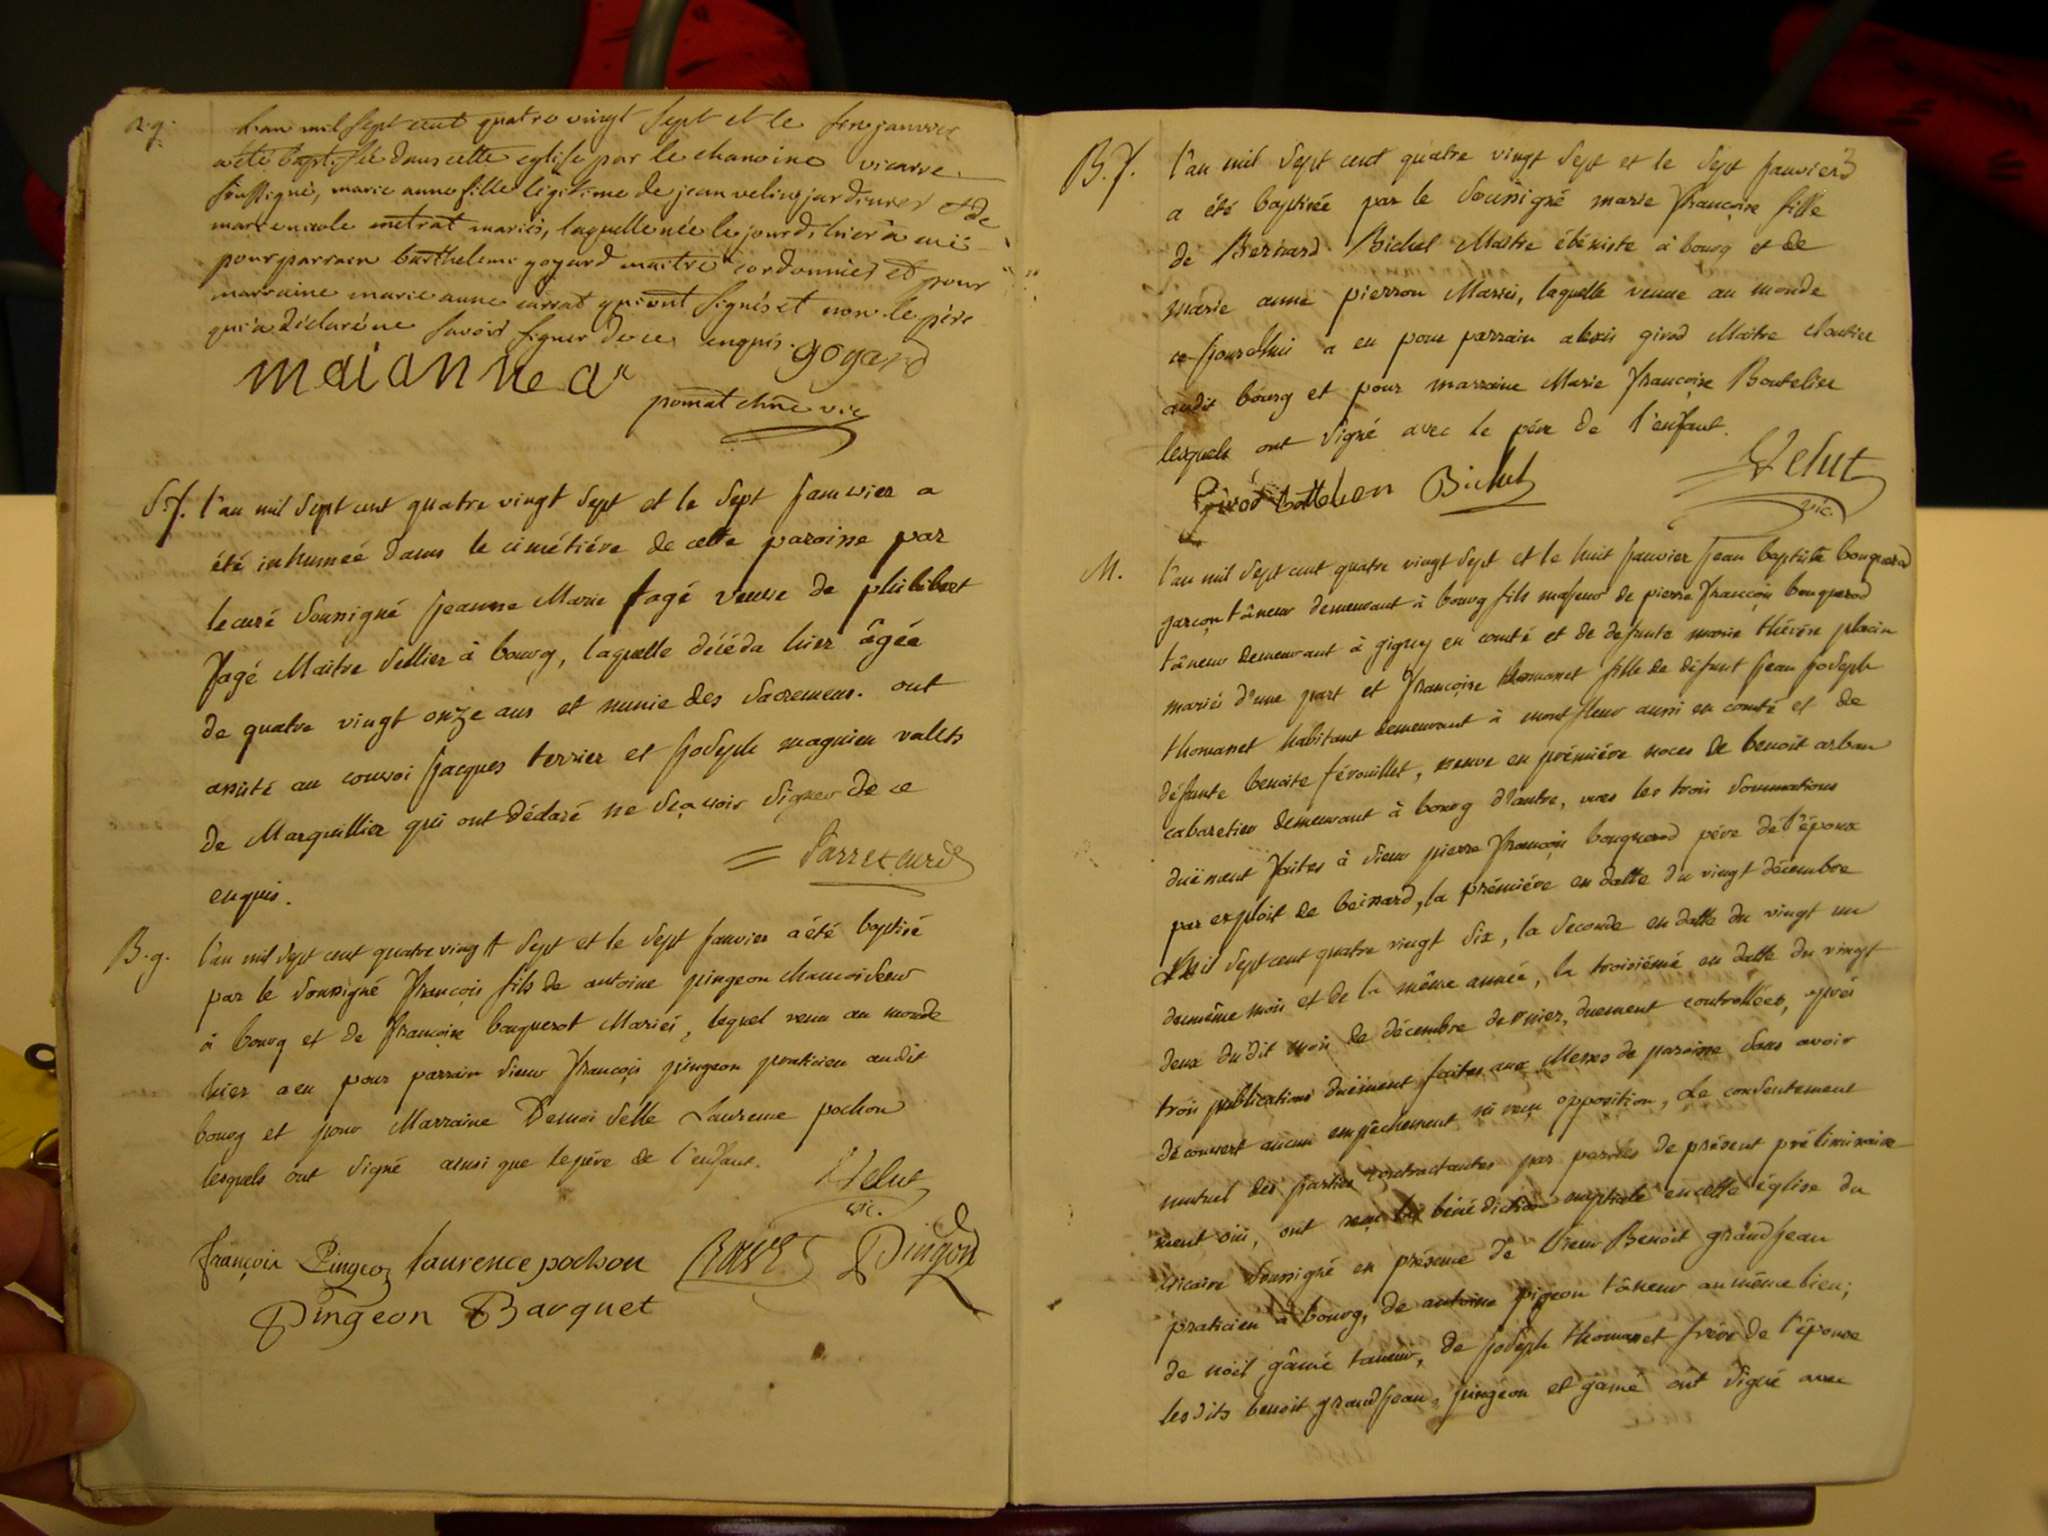 B.g.
L'an mil sept cent quatre vingt sept et le janvier
a été baptisée dans cette eglise par le chanoine vicaire
soussigné, marie anne fille légitime de jean velin jardinier et de
marie nicole metrat mariés, laquelle née le jour d'hier a eu
pour parrain barthelemi goyard maitre cordonnier et pour
marraine marie anne qui ont signés et non le père
qui a déclaré ne savoir signer de ce enquis. goyard
maianne
chne vic
S.f. l'an mil sept cent quatre vingt sept et le sept janvier a
été inhumée dans le cimétiére de cette paroisse par
le curé soussigné jeanne Marie fagé veuve de philibert
fagé Maître sellier à bourg, laquelle décéda hier âgée
de quatre vingt onze ans et munie des sacremens. ont
assisté au convoi jacques terrier et joseph magnien valets
de Marguillier qui ont déclaré ne sçavoir signer de ce
enquis.
curé
B.g. l'an mil sept cent quatre vingt sept et le sept janvier a été baptisé
par le soussigné françois fils de antoine pingeon chamoiseur
à bourg et de françoise bouquerot Mariés, lequel venu au monde
hier a eu pour parrain sieur françois pingeon praticien audit
bourg et pour Marraine Demoiselle Laurence pochon
lesquels ont signé ainsi que le père de l'enfant.
Velut
vic.
françois Pingeon laurence pochon Pingeon
Pingeon Barquet
B.f. l'an mil sept cent quatre vingt sept et le sept janvier
a été baptisée par le soussigné marie françoise fille
de Bernard Bichel Maître ébéniste à bourg et de
marie anne pierron Mariés, laquelle venue au monde
ce jourd'hui a eu pour parrain alexis girod Maître cloutier
audit bourg et pour marraine Marie françoise Boutelier
lesquels ont signé avec le père de l'enfant.
girod Bichel Velut
vic.
M. l'an mil sept cent quatre vingt sept et le huit janvier jean baptiste bouquerod
garçon tâneur demeurant à bourg fils majeur de pierre françois bouquerod
tâneur demeurant à gigny en comté et de defunte marie thérèse
mariés d'une part et françoise thomanet fille de défunt jean joseph
thomanet habitant demeurant à montfleur aussi en comté et de
défunte benoite févouillet, veuve en prémiére noces de benoit arban
cabaretier demeurant à bourg d'autre, vues les trois sommations
duëment faites à sieur pierre françois bouquerod père de l'époux
par exploit de beinard, la prémiére en datte du vingt décembre
Mil sept cent quatre vingt six, la seconde en datte du vingt un
du même mois et de la même année, la troisiémé en datte du vingt
deux dudit mois de décembre dernier, duement controllées, après
trois publications duëment faites aux Messes de paroisse sans avoir
découvert aucun empêchement ni reçu opposition, le consentement
mutuel des parties contractantes par paroles de présent préliminaire
ment oui, ont reçu la bénédiction nuptiale en cette église du
vicaire soussigné en présence de sieur Benoit grandjean
praticien à bourg, de antoine pigeon tâneur au même lieu;
de noël gâmé taneur, de joseph thomanet frère de l'épouse
lesdits benoit grandjean, pingeon et gamé ont signé avec